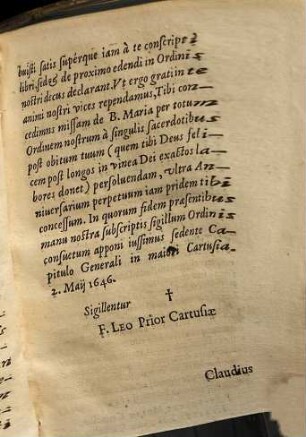 buisti satis supérque iam à te conscripti
libri, sed & de proximo edendi in Ordinis
nostri decus declarant. Vt ergo gratiin te
animi nostri vices rependamus, Tibi con-
cedimus missam de B. Maria per totum
Ordinem nostrum à singulis sacerdotibus
post obitum tuum (quem tibi Deus feli-
cem post longos in vinea Dei exactos la-
bores donet) persoluendam, vltra An-
niuersarium perpetuum iam pridem tibi
concessum. In quorum fidem præsentibus
manu nostra subscriptis sigillum Ordinis
consuetum apponi iussimus sedente Ca-
pitulo Generali in maiori Cartusia.
2. Maij 1646.
Sigillentur †
F. LEO Prior Cartusiæ
Claudius